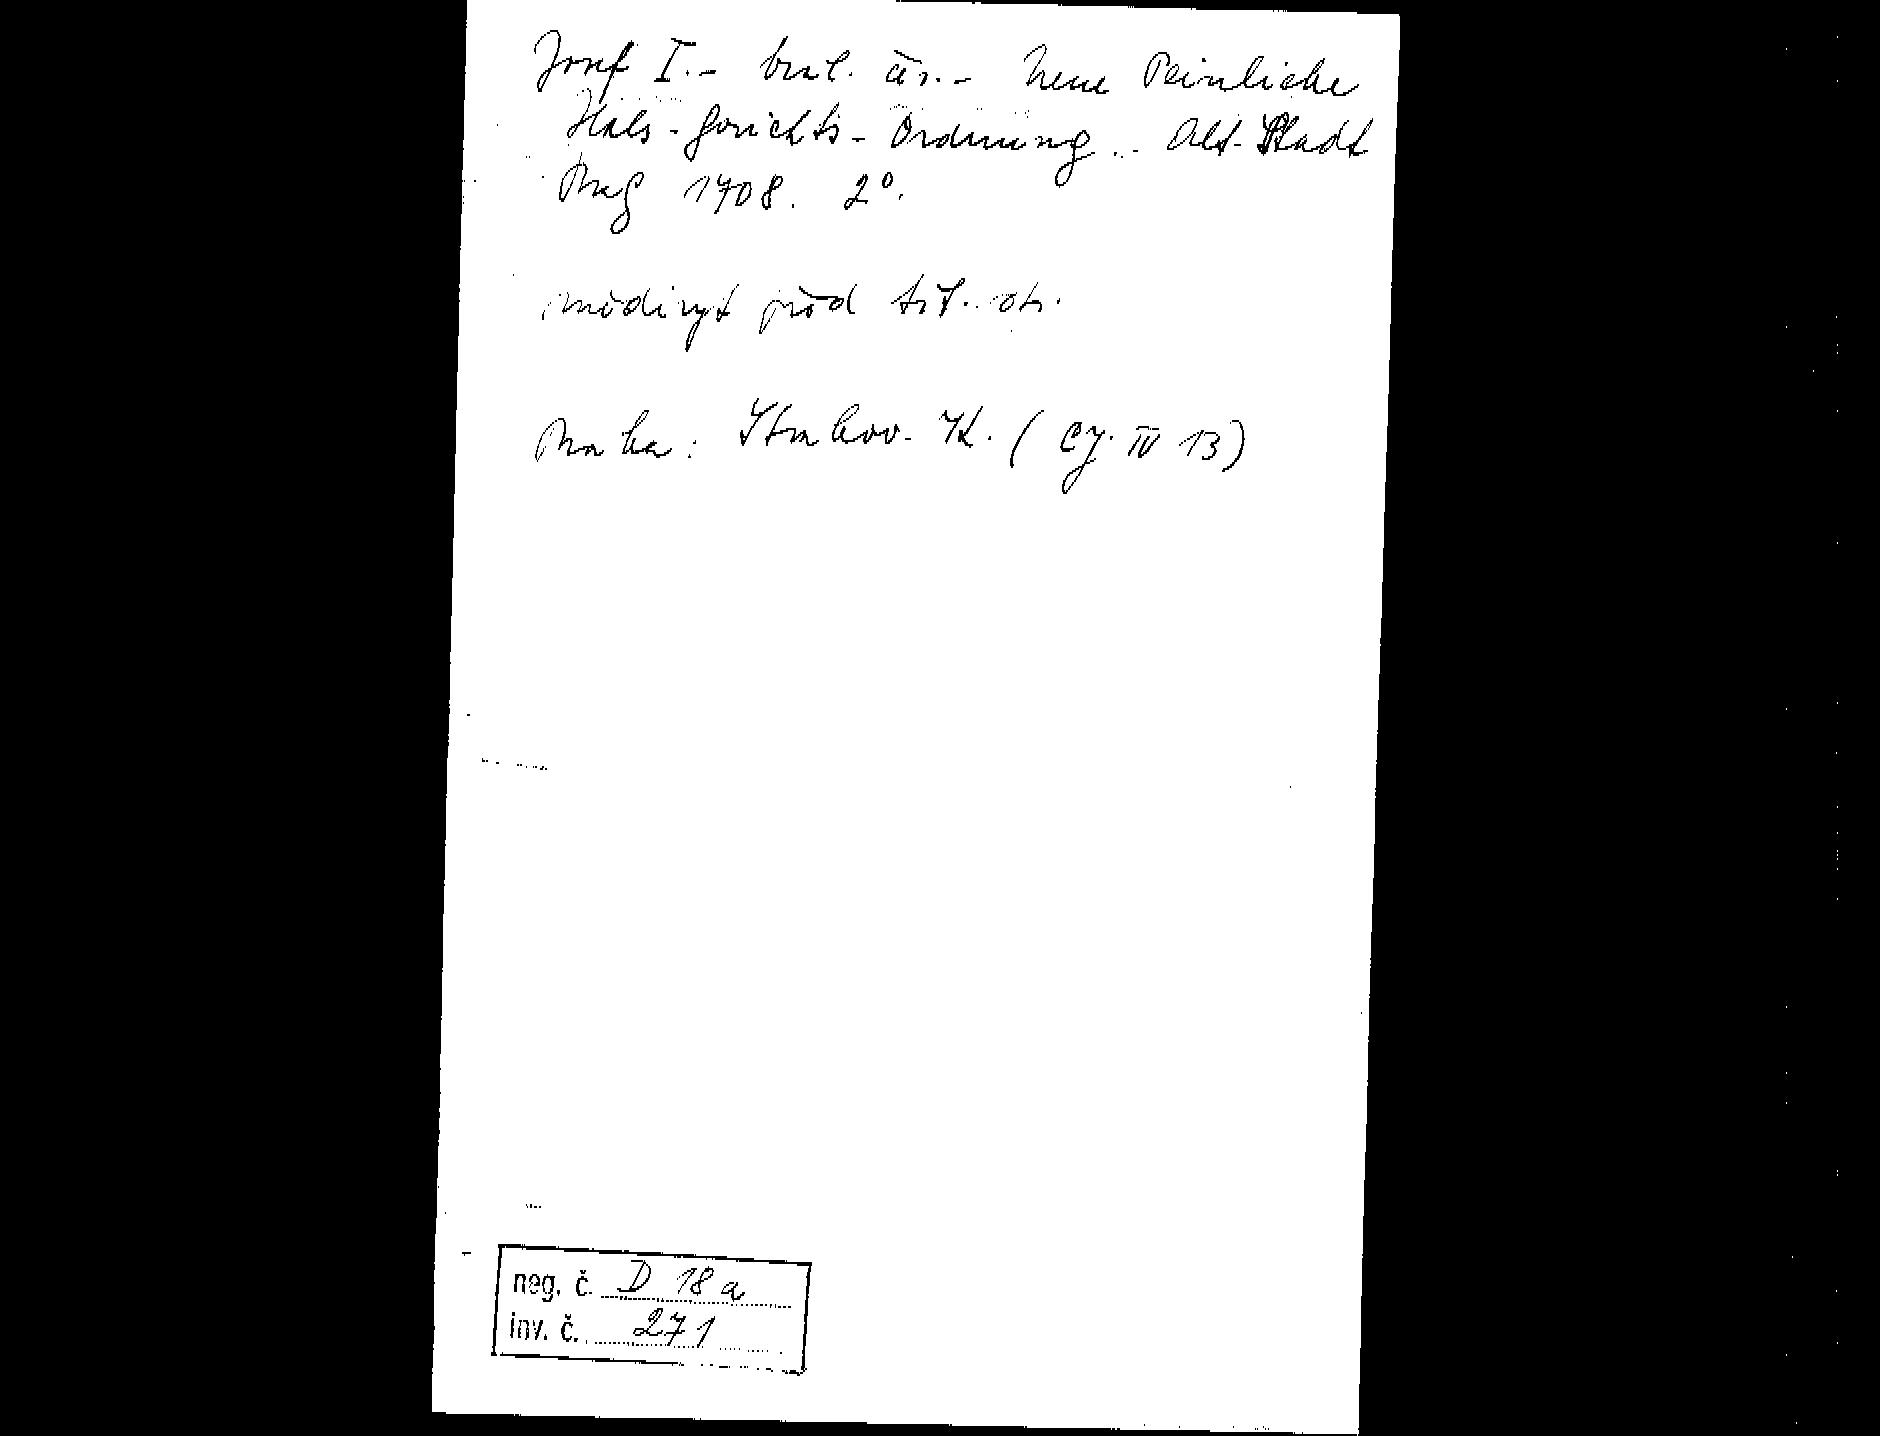 Josef I. - král. čes. - Neue Peinliche
Hals-Gerichts-Ordnung .. Alt-Stadt
Prag 1708. 2°.
mědiryt před tit. str.
Praha: Strahov. K. (CJ. IV 13)
neg. č. D 18 a
inv. č. 271